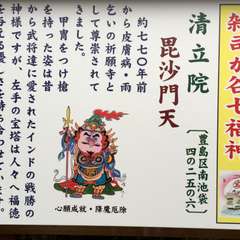 雑司が谷七福神
清立院
毘沙門天
〔豊島区南池袋
四の二五の六〕
約七七〇年前
から皮膚病・雨
乞いの祈願寺と
して尊崇されて
甲冑をつけ槍
を持った姿は昔
から武達に愛されたインドの戦勝の
神様ですが、左手の宝塔は人々へ福徳
心願成就・降魔厄除